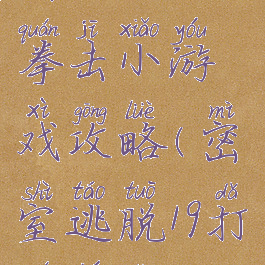 quán jī xiǎo yóu
拳击小游
xì gōng lüè mì
戏攻略(密
shì táo tuō dǎ
室逃脱19打